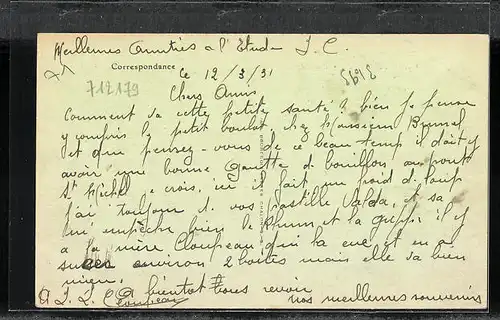 Meilleures Amitiés à l'Etude J. C.
Correspondance
ce 12/3/31
3695
712179
Chers Amis
Comment va cette petite santé? bien je pense
y compris le petit boulot chez Monsieur Brunal
et que pensez-vous de ce beau temp il doit y
avoir une bonne goutte d bouillon au pont
St Michel je crois, ici il fait un froid d loup
j'ai toujour d vos pastille Valda, et sa
m'empêche bien le Rhum et la grippe il y
a la mère Cloupeau qui la eue, et en a
suces environ 2 boites mais elle va bien
mieux.
A bientot vous revoir
nos meilleures souvenirs